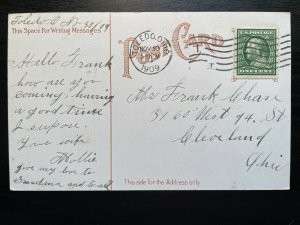 Toledo O Nov 30/09
This Space For Writing Messages
Post Card
TOLEDO, OHIO
NOV 30
1909
U.S. POSTAGE
ONE CENT
Hello Frank
how are you
coming, having
a good time
I suppose.
Your wife
Mollie
give my love to
Grandma and to all
Mr Frank Chase
3160 West 94 St
Cleveland
Ohio
This side for the Address only